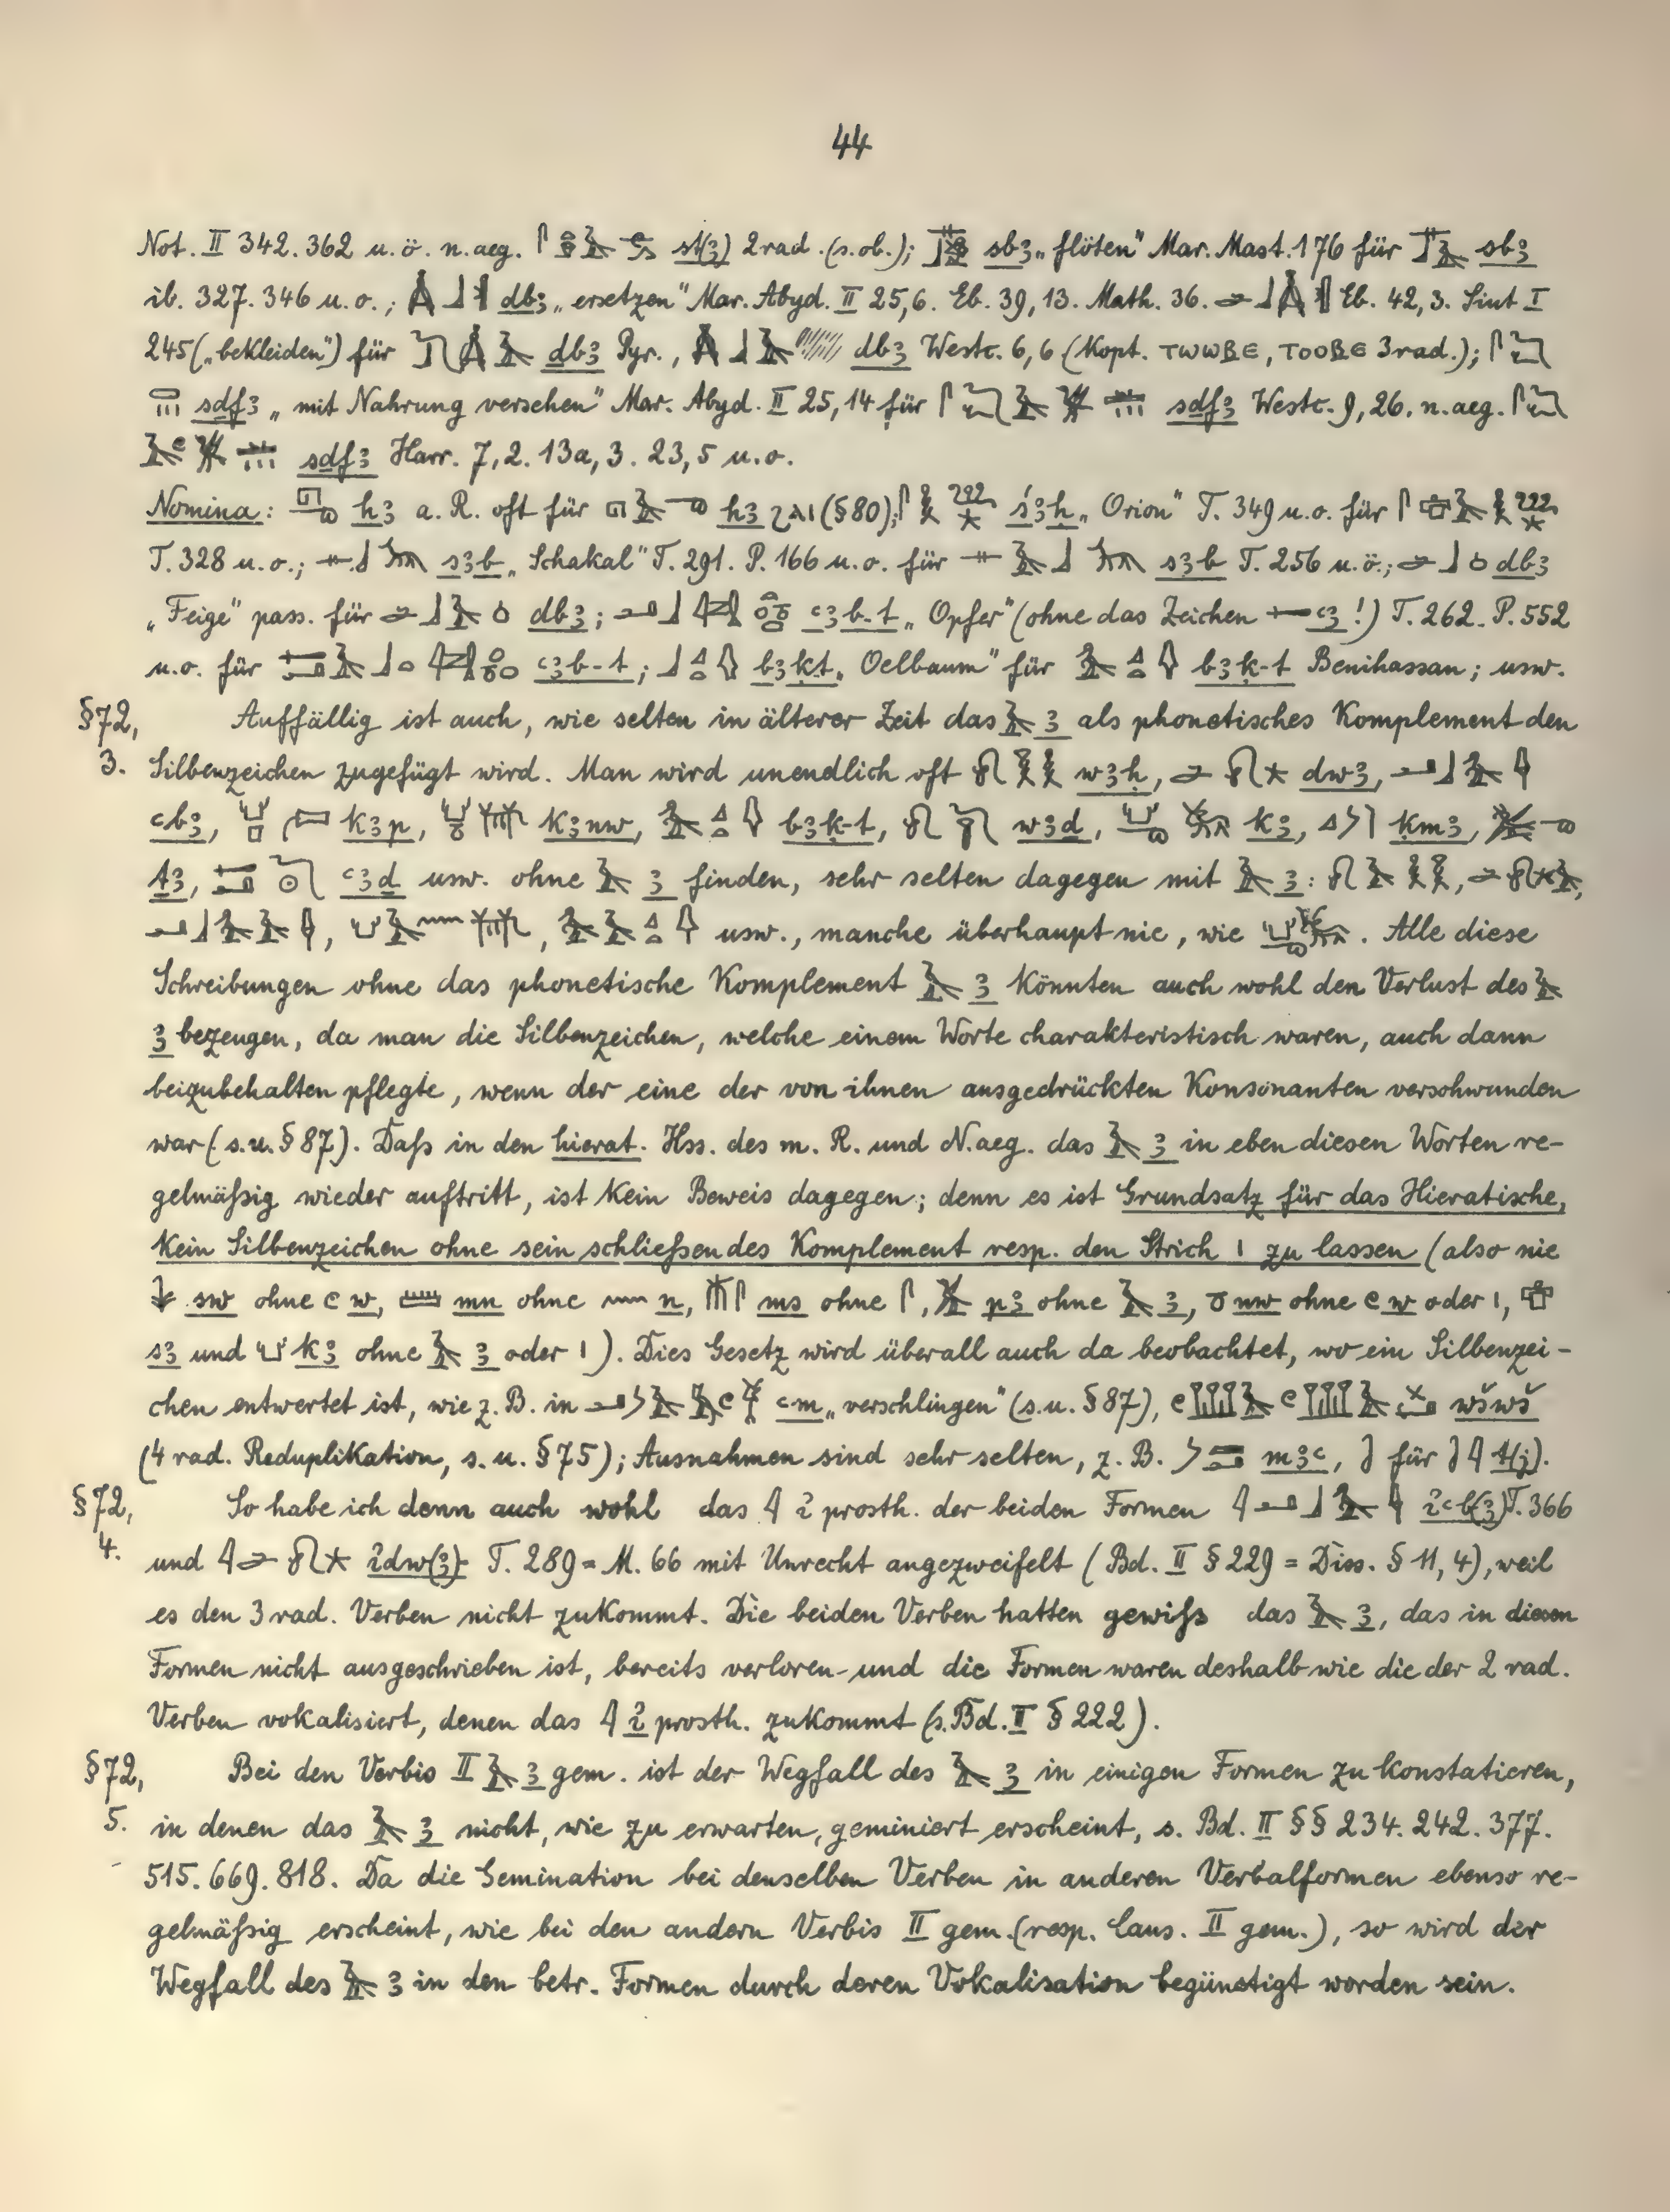 44
Not. II 342. 362 u. ö. n. aeg. st(ꜣ) 2rad. (s. ob.); sbꜣ „flöten“ Mar. Mast. 176 für sbꜣ
ib. 327. 346 u. o.; dbꜣ „ersetzen“ Mar. Abyd. II 25,6. Eb. 39, 13. Math. 36. Eb. 42, 3. Siut I
245 („bekleiden“) für dbꜣ Pyr., dbꜣ Westc. 6,6 (Kopt. ⲧⲱⲱⲃⲉ, ⲧⲟⲟⲃⲉ 3rad.);
sdfꜣ „mit Nahrung versehen“ Mar. Abyd. II 25, 14 für sdfꜣ Westc. 9, 26. n. aeg.
sdfꜣ Harr. 7, 2. 13a, 3. 23, 5 u. o.
Nomina: hꜣ a. R. oft für hꜣ (§ 80); śꜣḥ „Orion“ T. 349 u. o. für
T. 328 u. o.; sꜣb „Schakal“ T. 291. P. 166 u. o. für sꜣb T. 256 u. ö.; dbꜣ
„Feige“ pass. für dbꜣ; ꜥꜣb-t „Opfer“ (ohne das Zeichen ꜥꜣ!) T. 262. P. 552
u. o. für ꜥꜣb-t; bꜣḳt „Oelbaum“ für bꜣḳ-t Benihassan; usw.
§72, 3. Auffällig ist auch, wie selten in älterer Zeit das ꜣ als phonetisches Komplement den
Silbenzeichen zugefügt wird. Man wird unendlich oft wꜣḥ, dwꜣ,
ꜥbꜣ, kꜣp, kꜣnw, bꜣḳ-t, wꜣd, kꜣ, ḳmꜣ,
tꜣ, ꜥꜣd usw. ohne ꜣ finden, sehr selten dagegen mit ꜣ:
usw., manche überhaupt nie, wie . Alle diese
Schreibungen ohne das phonetische Komplement ꜣ könnten auch wohl den Verlust des
ꜣ bezeugen, da man die Silbenzeichen, welche einem Worte charakteristisch waren, auch dann
beizubehalten pflegte, wenn der eine der von ihnen ausgedrückten Konsonanten verschwunden
war (s. u. § 87). Daſs in den hierat. Hss. des m. R. und N. aeg. das ꜣ in eben diesen Worten re-
gelmäſsig wieder auftritt, ist kein Beweis dagegen; denn es ist Grundsatz für das Hieratische,
kein Silbenzeichen ohne sein schlieſsendes Komplement resp. den Strich | zu lassen (also nie
sw ohne w, mn ohne n, ms ohne , pꜣ ohne ꜣ, nw ohne w oder |,
sꜣ und kꜣ ohne ꜣ oder |). Dies Gesetz wird überall auch da beobachtet, wo ein Silbenzei-
chen entwertet ist, wie z. B. in ꜥm „verschlingen“ (s. u. § 87), wšwš
(4 rad. Reduplikation, s. u. § 75); Ausnahmen sind sehr selten, z. B. mꜣꜥ, für t(j).
§72, 4. So habe ich denn auch wohl das i prosth. der beiden Formen iꜥb(ꜣ) T. 366
und idw(ꜣ) T. 289 = M. 66 mit Unrecht angezweifelt (Bd. II § 229 = Diss. § 11, 4), weil
es den 3 rad. Verben nicht zukommt. Die beiden Verben hatten gewiſs das ꜣ, das in diesen
Formen nicht ausgeschrieben ist, bereits verloren und die Formen waren deshalb wie die der 2 rad.
Verben vokalisiert, denen das i prosth. zukommt (s. Bd. II § 222).
§72, 5. Bei den Verbis II ꜣ gem. ist der Wegfall des ꜣ in einigen Formen zu konstatieren,
in denen das ꜣ nicht, wie zu erwarten, geminiert erscheint, s. Bd. II §§ 234. 242. 377.
515. 669. 818. Da die Gemination bei denselben Verben in anderen Verbalformen ebenso re-
gelmäſsig erscheint, wie bei den andern Verbis II gem. (resp. Caus. II gem.), so wird der
Wegfall des ꜣ in den betr. Formen durch deren Vokalisation begünstigt worden sein.